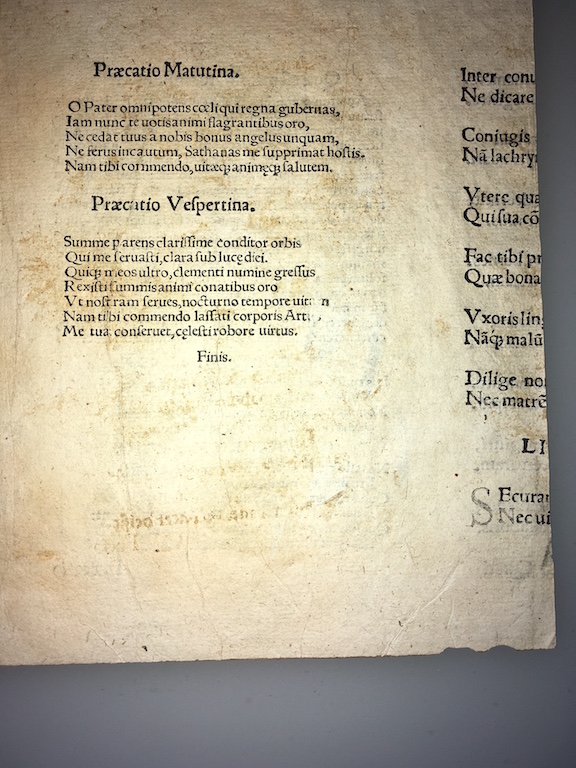 Præcatio Matutina.
O Pater omnipotens cœli qui regna gubernas,
Iam nunc te uotis animi flagrantibus oro,
Ne cedat tuus a nobis bonus angelus unquam,
Ne ferus incautum, Sathanas me supprimat hostis.
Nam tibi commendo, uitæq́ʒ animęq́ʒ salutem.
Præcatio Vespertina.
Summe parens clarissime conditor orbis
Qui me seruasti, clara sub lucę diei.
Quiq́ʒ meos ultro, clementi numine gressus
Rexisti summis animi conatibus oro
Vt nostram serues, nocturno tempore
Nam tibi commendo lassati corporis
Me tua conseruet, cęlesti robore uirtus.
Finis.
Inter
Ne dicare
Coniugis
Nā
Vtere
Qui sua
Fac tibi
Quæ bona
Vxoris
Nāq́ʒ
Dilige
Nec matrē
Nec